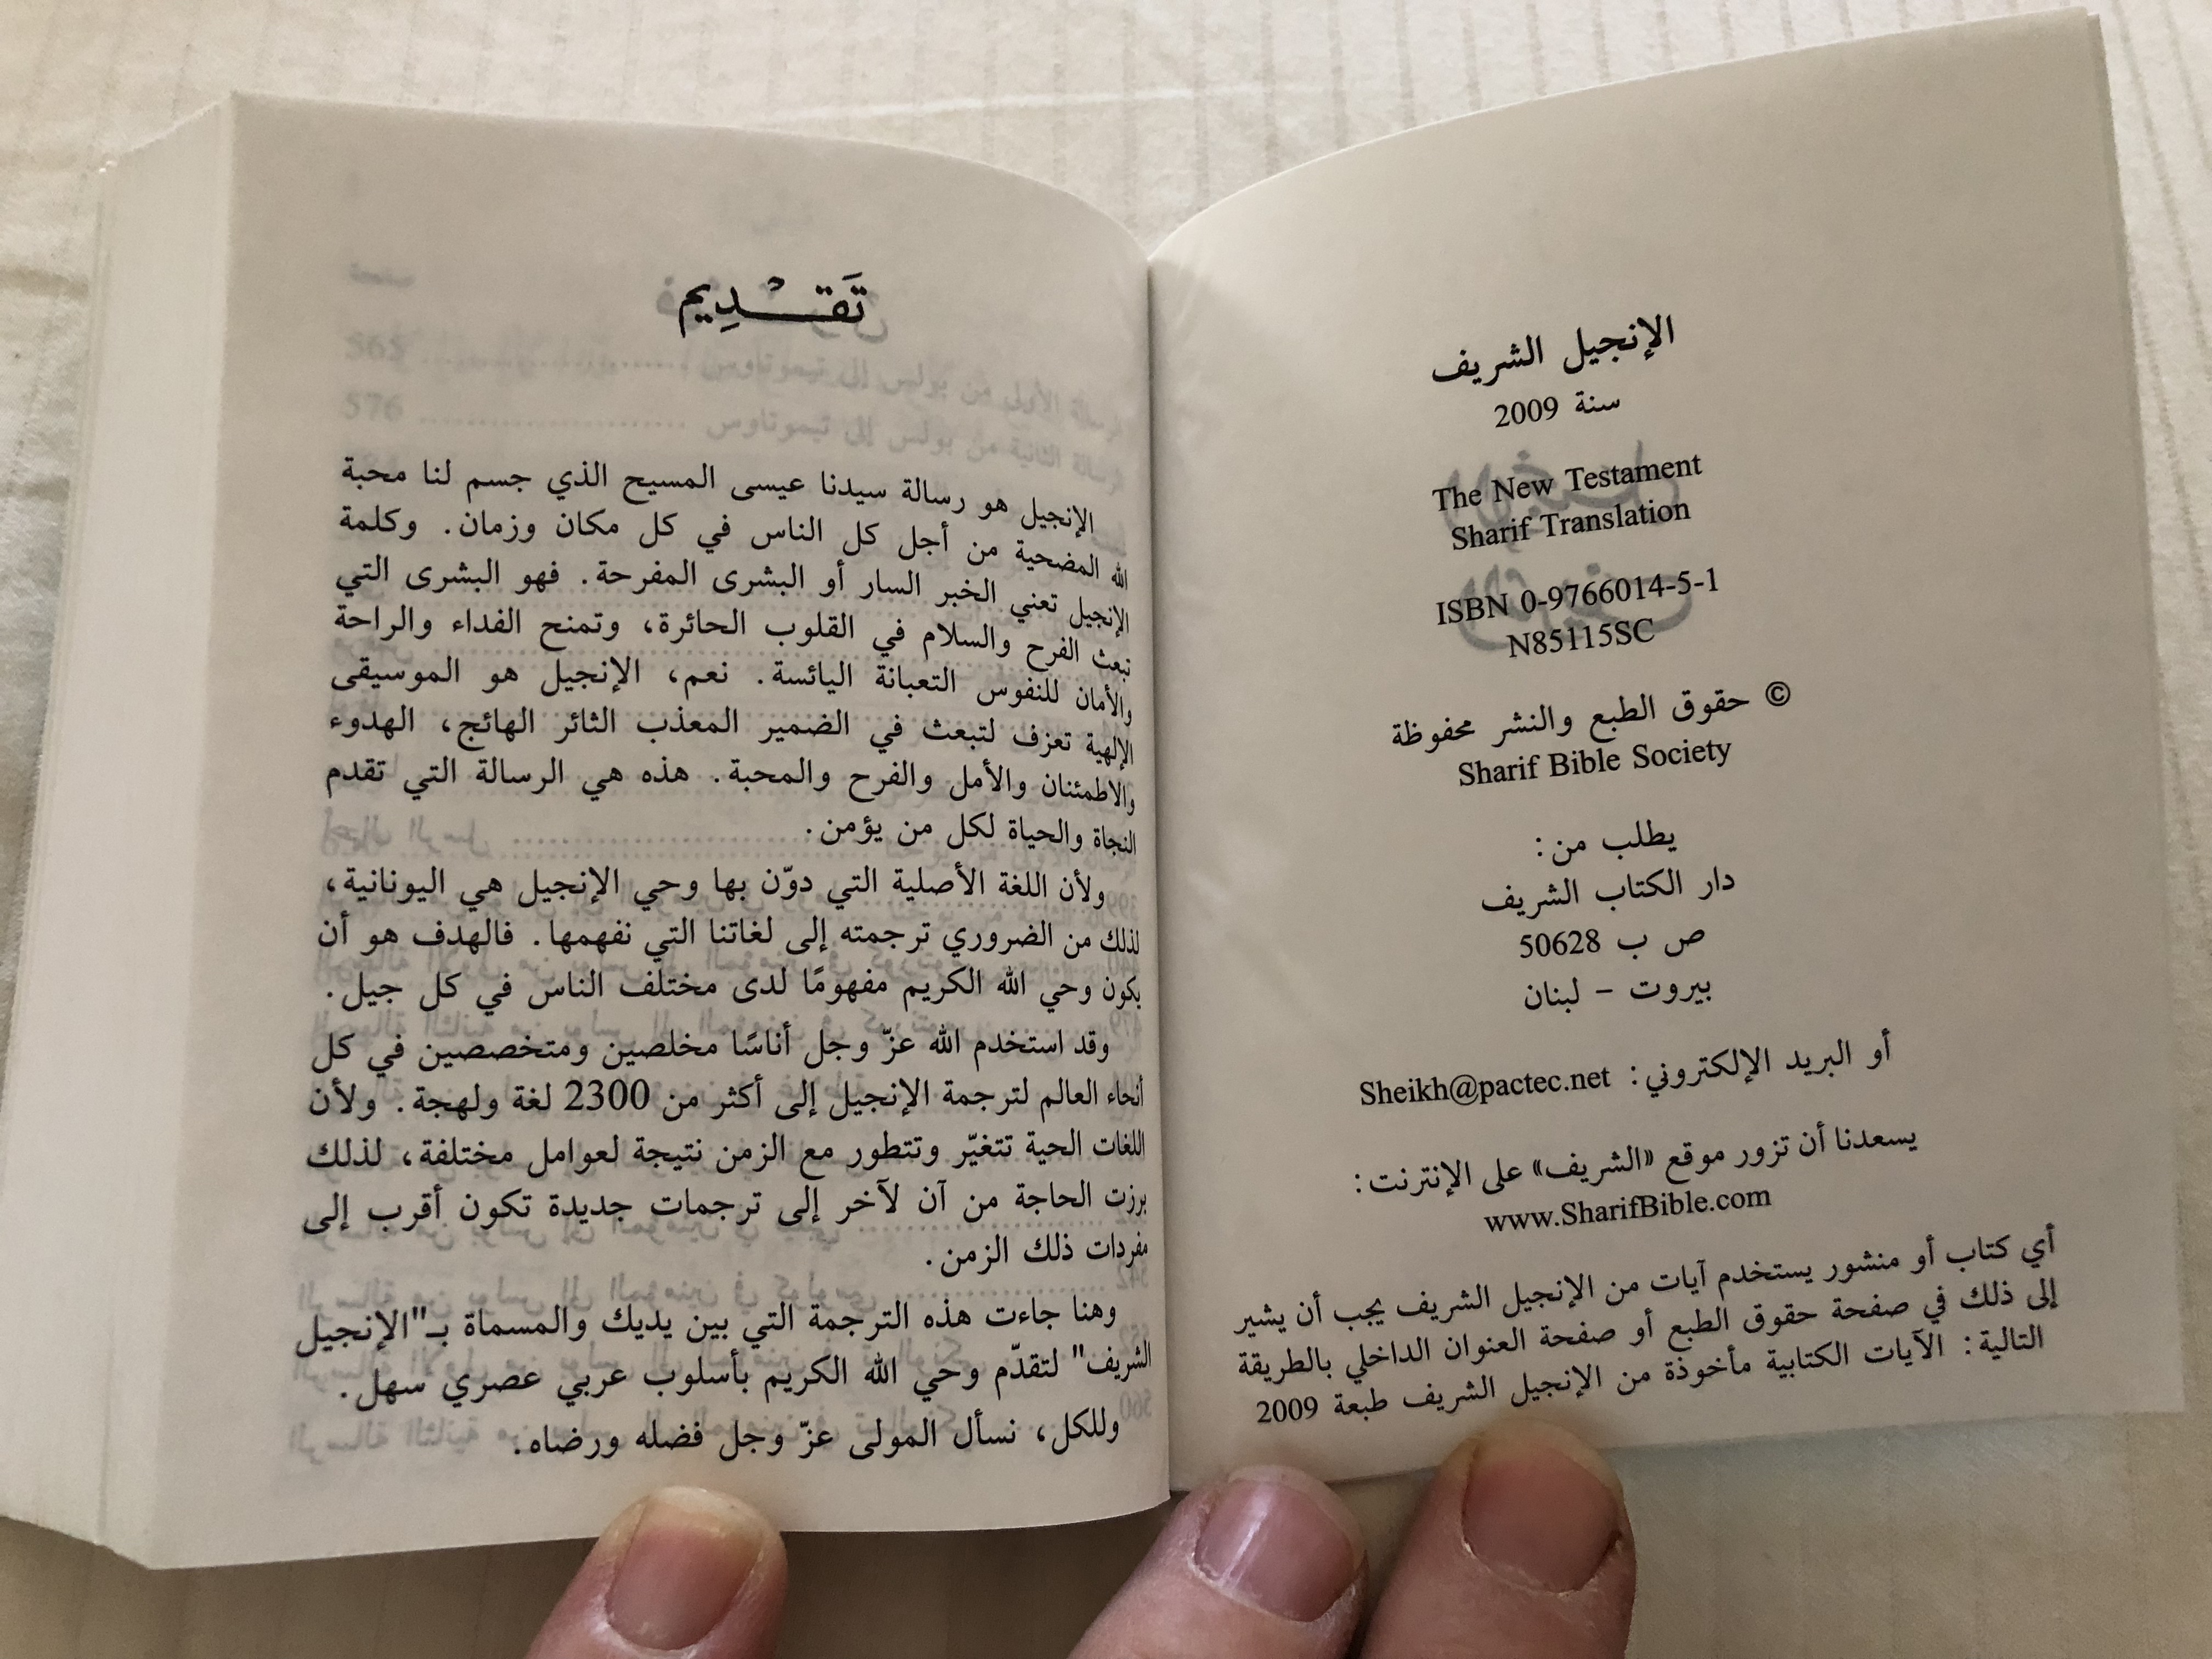 الإنجيل الشريف
سنة 2009
The New Testament
Sharif Translation
ISBN 0-9766014-5-1
N85115SC
© حقوق الطبع والنشر محفوظة
Sharif Bible Society
يطلب من :
دار الكتاب الشريف
ص ب 50628
بيروت – لبنان
أو البريد الإلكتروني : Sheikh@pactec.net
يسعدنا أن تزور موقع «الشريف» على الإنترنت :
www.SharifBible.com
أي كتاب أو منشور يستخدم آيات من الإنجيل الشريف يجب أن يشير
إلى ذلك في صفحة حقوق الطبع أو صفحة العنوان الداخلي بالطريقة
التالية : الآيات الكتابية مأخوذة من الإنجيل الشريف طبعة 2009
تَقْـدِيم
الإنجيل هو رسالة سيدنا عيسى المسيح الذي جسم لنا محبة
الله المضحية من أجل كل الناس في كل مكان وزمان. وكلمة
الإنجيل تعني الخبر السار أو البشرى المفرحة. فهو البشرى التي
تبعث الفرح والسلام في القلوب الحائرة، وتمنح الفداء والراحة
والأمان للنفوس التعبانة اليائسة. نعم، الإنجيل هو الموسيقى
الإلهية تعزف لتبعث في الضمير المعذب الثائر الهائج، الهدوء
والاطمئنان والأمل والفرح والمحبة. هذه هي الرسالة التي تقدم
النجاة والحياة لكل من يؤمن.
ولأن اللغة الأصلية التي دوّن بها وحي الإنجيل هي اليونانية،
لذلك من الضروري ترجمته إلى لغاتنا التي نفهمها. فالهدف هو أن
يكون وحي الله الكريم مفهومًا لدى مختلف الناس في كل جيل.
وقد استخدم الله عزّ وجل أناسًا مخلصين ومتخصصين في كل
أنحاء العالم لترجمة الإنجيل إلى أكثر من 2300 لغة ولهجة. ولأن
اللغات الحية تتغيّر وتتطور مع الزمن نتيجة لعوامل مختلفة، لذلك
برزت الحاجة من آن لآخر إلى ترجمات جديدة تكون أقرب إلى
مفردات ذلك الزمن.
وهنا جاءت هذه الترجمة التي بين يديك والمسماة بـ"الإنجيل
الشريف" لتقدّم وحي الله الكريم بأسلوب عربي عصري سهل.
وللكل، نسأل المولى عزّ وجل فضله ورضاه.